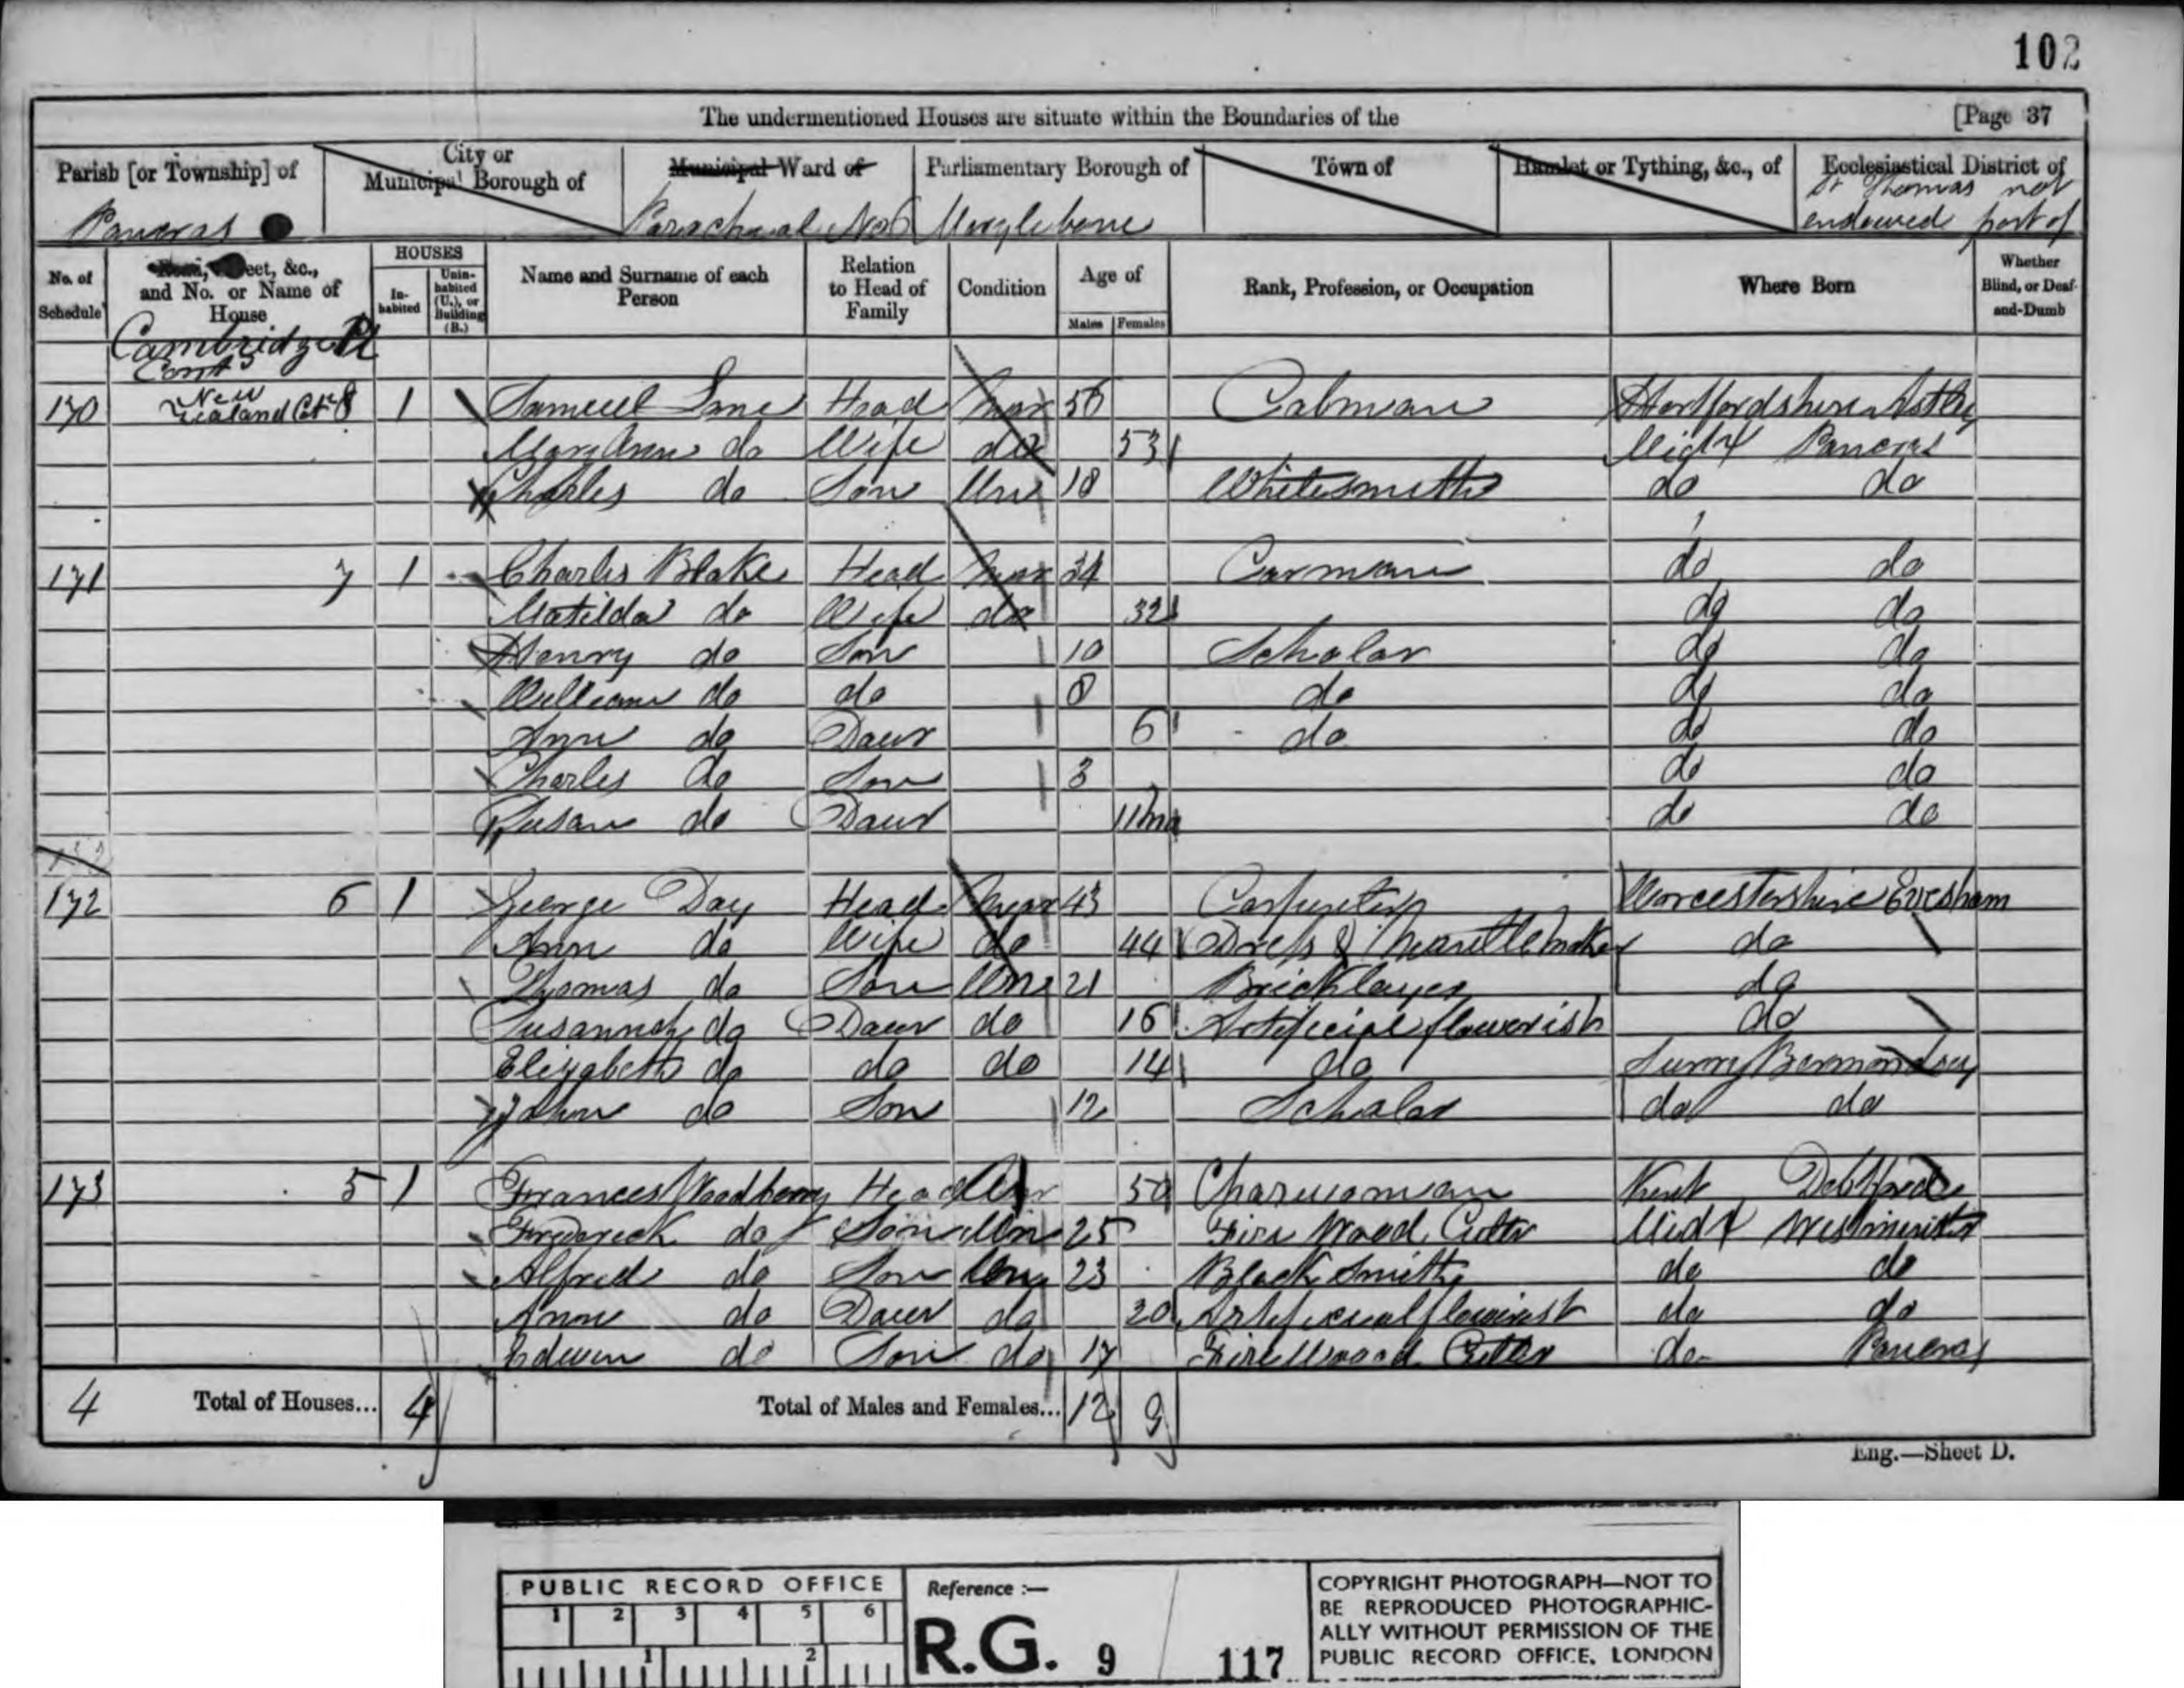 102
The undermentioned Houses are situate within the Boundaries of the [Page 37
Parish [or Township] of City or Municipal Borough of Municipal Ward of Parliamentary Borough of Town of Hamlet or Tything, &c., of Ecclesiastical District of
Pancras Parochial No 6 Marylebone St Thomas not endowed part of
No. of Schedule Road, Street, &c., and No. or Name of House HOUSES Inhabited Uninhabited (U.), or Building (B.) Name and Surname of each Person Relation to Head of Family Condition Age of Males Females Rank, Profession, or Occupation Where Born Whether Blind, or Deaf-and-Dumb
Cambridge Pl
Contd
170 New Zealand Cot 8 1 Samuel Lane Head Mar 56 Cabman Hertfordshire
Mary Ann do Wife do 53 Midx Pancras
Charles do Son Un 18 Whitesmith do do
171 7 1 Charles Blake Head Mar 34 Carman do do
Matilda do Wife do 32 do do
Henry do Son 10 Scholar do do
William do do 8 do do do
Ann do Daur 6 do do do
Charles do Son 3 do do
Susan do Daur 11 mo do do
172 6 1 George Day Head Mar 43 Carpenter Worcestershire Evesham
Ann do Wife do 44 Dress & Mantle Maker do
Thomas do Son Un 21 Bricklayer do
Susannah do Daur do 16 Artificial flowerist do
Elizabeth do do do 14 do Surry Bermondsey
John do Son 12 Scholar do do
173 5 1 Frances Woodberry Head 50 Charwoman Kent Debtford
Frederick do Son Un 25 Fire Wood Cutter Midx Westminster
Alfred do Son Un 23 Black Smith do do
Ann do Daur do 20 Artificial flowerist do do
Edwin do Son do 17 Fire Wood Cutter do Pancras
4 Total of Houses... 4 Total of Males and Females... 12 9
Eng.—Sheet D.
PUBLIC RECORD OFFICE
1 2 3 4 5 6
1 2
Reference :—
R.G. 9 / 117
COPYRIGHT PHOTOGRAPH—NOT TO
BE REPRODUCED PHOTOGRAPHIC-
ALLY WITHOUT PERMISSION OF THE
PUBLIC RECORD OFFICE, LONDON